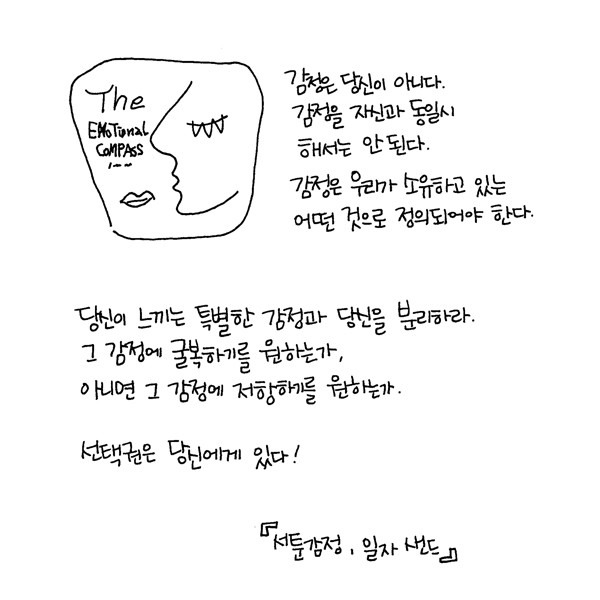 The
EMOTional
COMPASS
감정은 당신이 아니다.
감정을 자신과 동일시
해서는 안 된다.
감정은 우리가 소유하고 있는
어떤 것으로 정의되어야 한다.
당신이 느끼는 특별한 감정과 당신을 분리하라.
그 감정에 굴복하기를 원하는가,
아니면 그 감정에 저항하기를 원하는가.
선택권은 당신에게 있다!
『서툰감정, 일자 샌드』